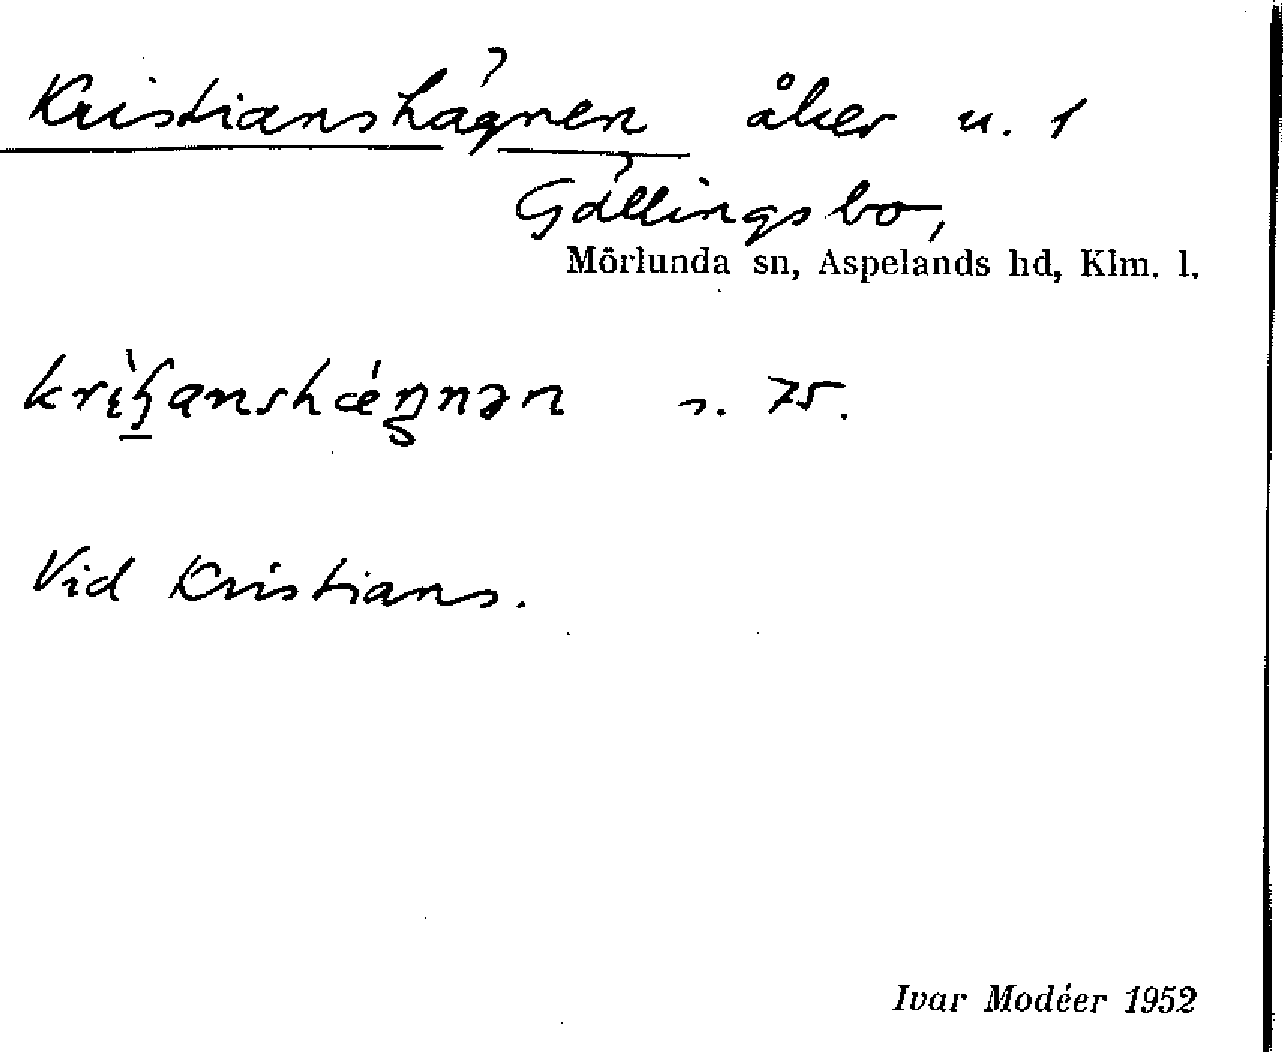 Kristianshägnen åker u. 1
Gällingsbo,
Mörlunda sn, Aspelands hd, Klm. l.
s. 75.
Vid Kristians.
Ivar Modéer 1952